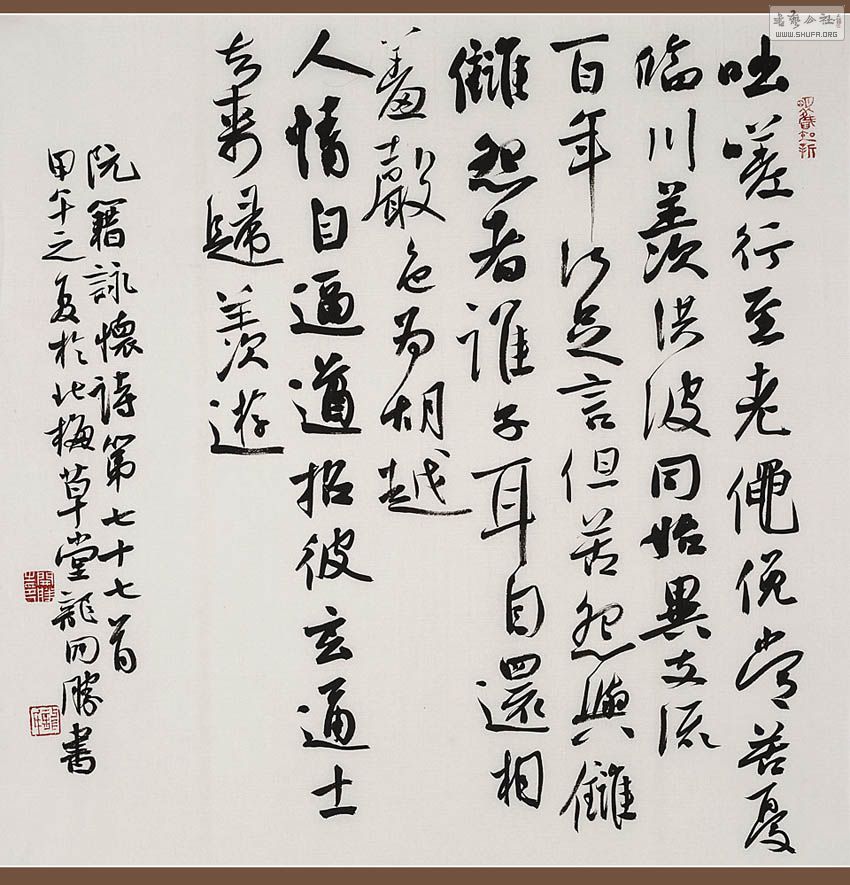 書藝公社
WWW.SHUFA.ORG
咄嗟行至老僶俛常苦憂
臨川羨洪波同始異支流
百年何足言但苦怨與讎
讎怨者誰子耳目還相
羞聲色為胡越
人情自逼遒招彼玄通士
去來歸羨遊
阮籍詠懷詩第七十七首
甲午之夏於北梅草堂龍開勝書